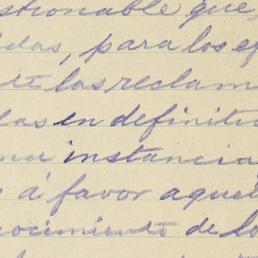 stionable que
idas, para los ef
las reclam
las en definitiv
ma instancia,
á favor aquel
nocimiento de lo